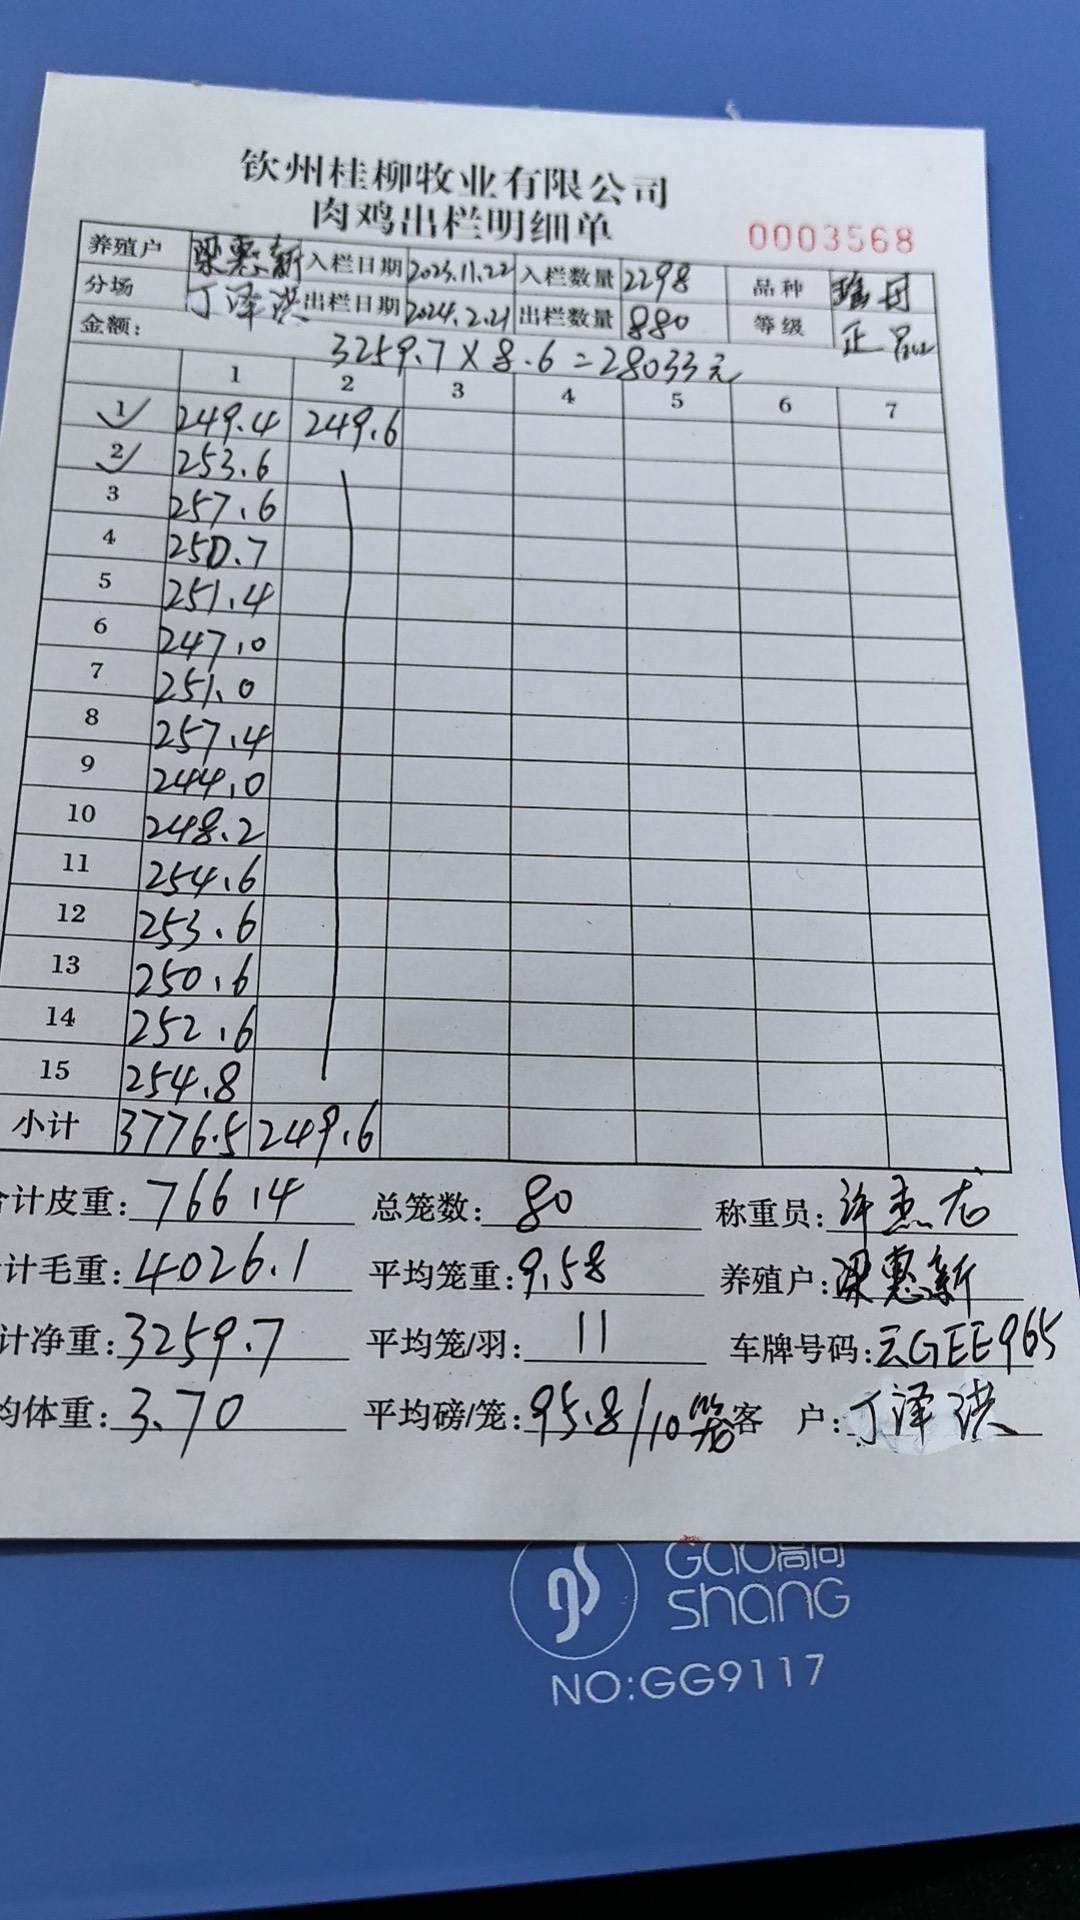 钦州桂柳牧业有限公司
肉鸡出栏明细单
0003568
养殖户 梁惠新 入栏日期 2023.11.22 入栏数量 2298 品种 瑶丹
分场 丁泽洪 出栏日期 2024.2.21 出栏数量 880 等级 正品
金额: 3259.7×8.6=28033元
1 2 3 4 5 6 7
1 249.4 249.6
2 253.6
3 257.6
4 250.7
5 251.4
6 247.0
7 251.0
8 257.4
9 244.0
10 248.2
11 254.6
12 253.6
13 250.6
14 252.6
15 254.8
小计 3776.5 249.6
合计皮重: 766.4 总笼数: 80 称重员: 许杰龙
计毛重: 4026.1 平均笼重: 9.58 养殖户: 梁惠新
计净重: 3259.7 平均笼/羽: 11 车牌号码: 云GEE965
均体重: 3.70 平均磅/笼: 95.8/10笼 客 户: 丁泽洪
gs Gao高尚
shang
NO:GG9117